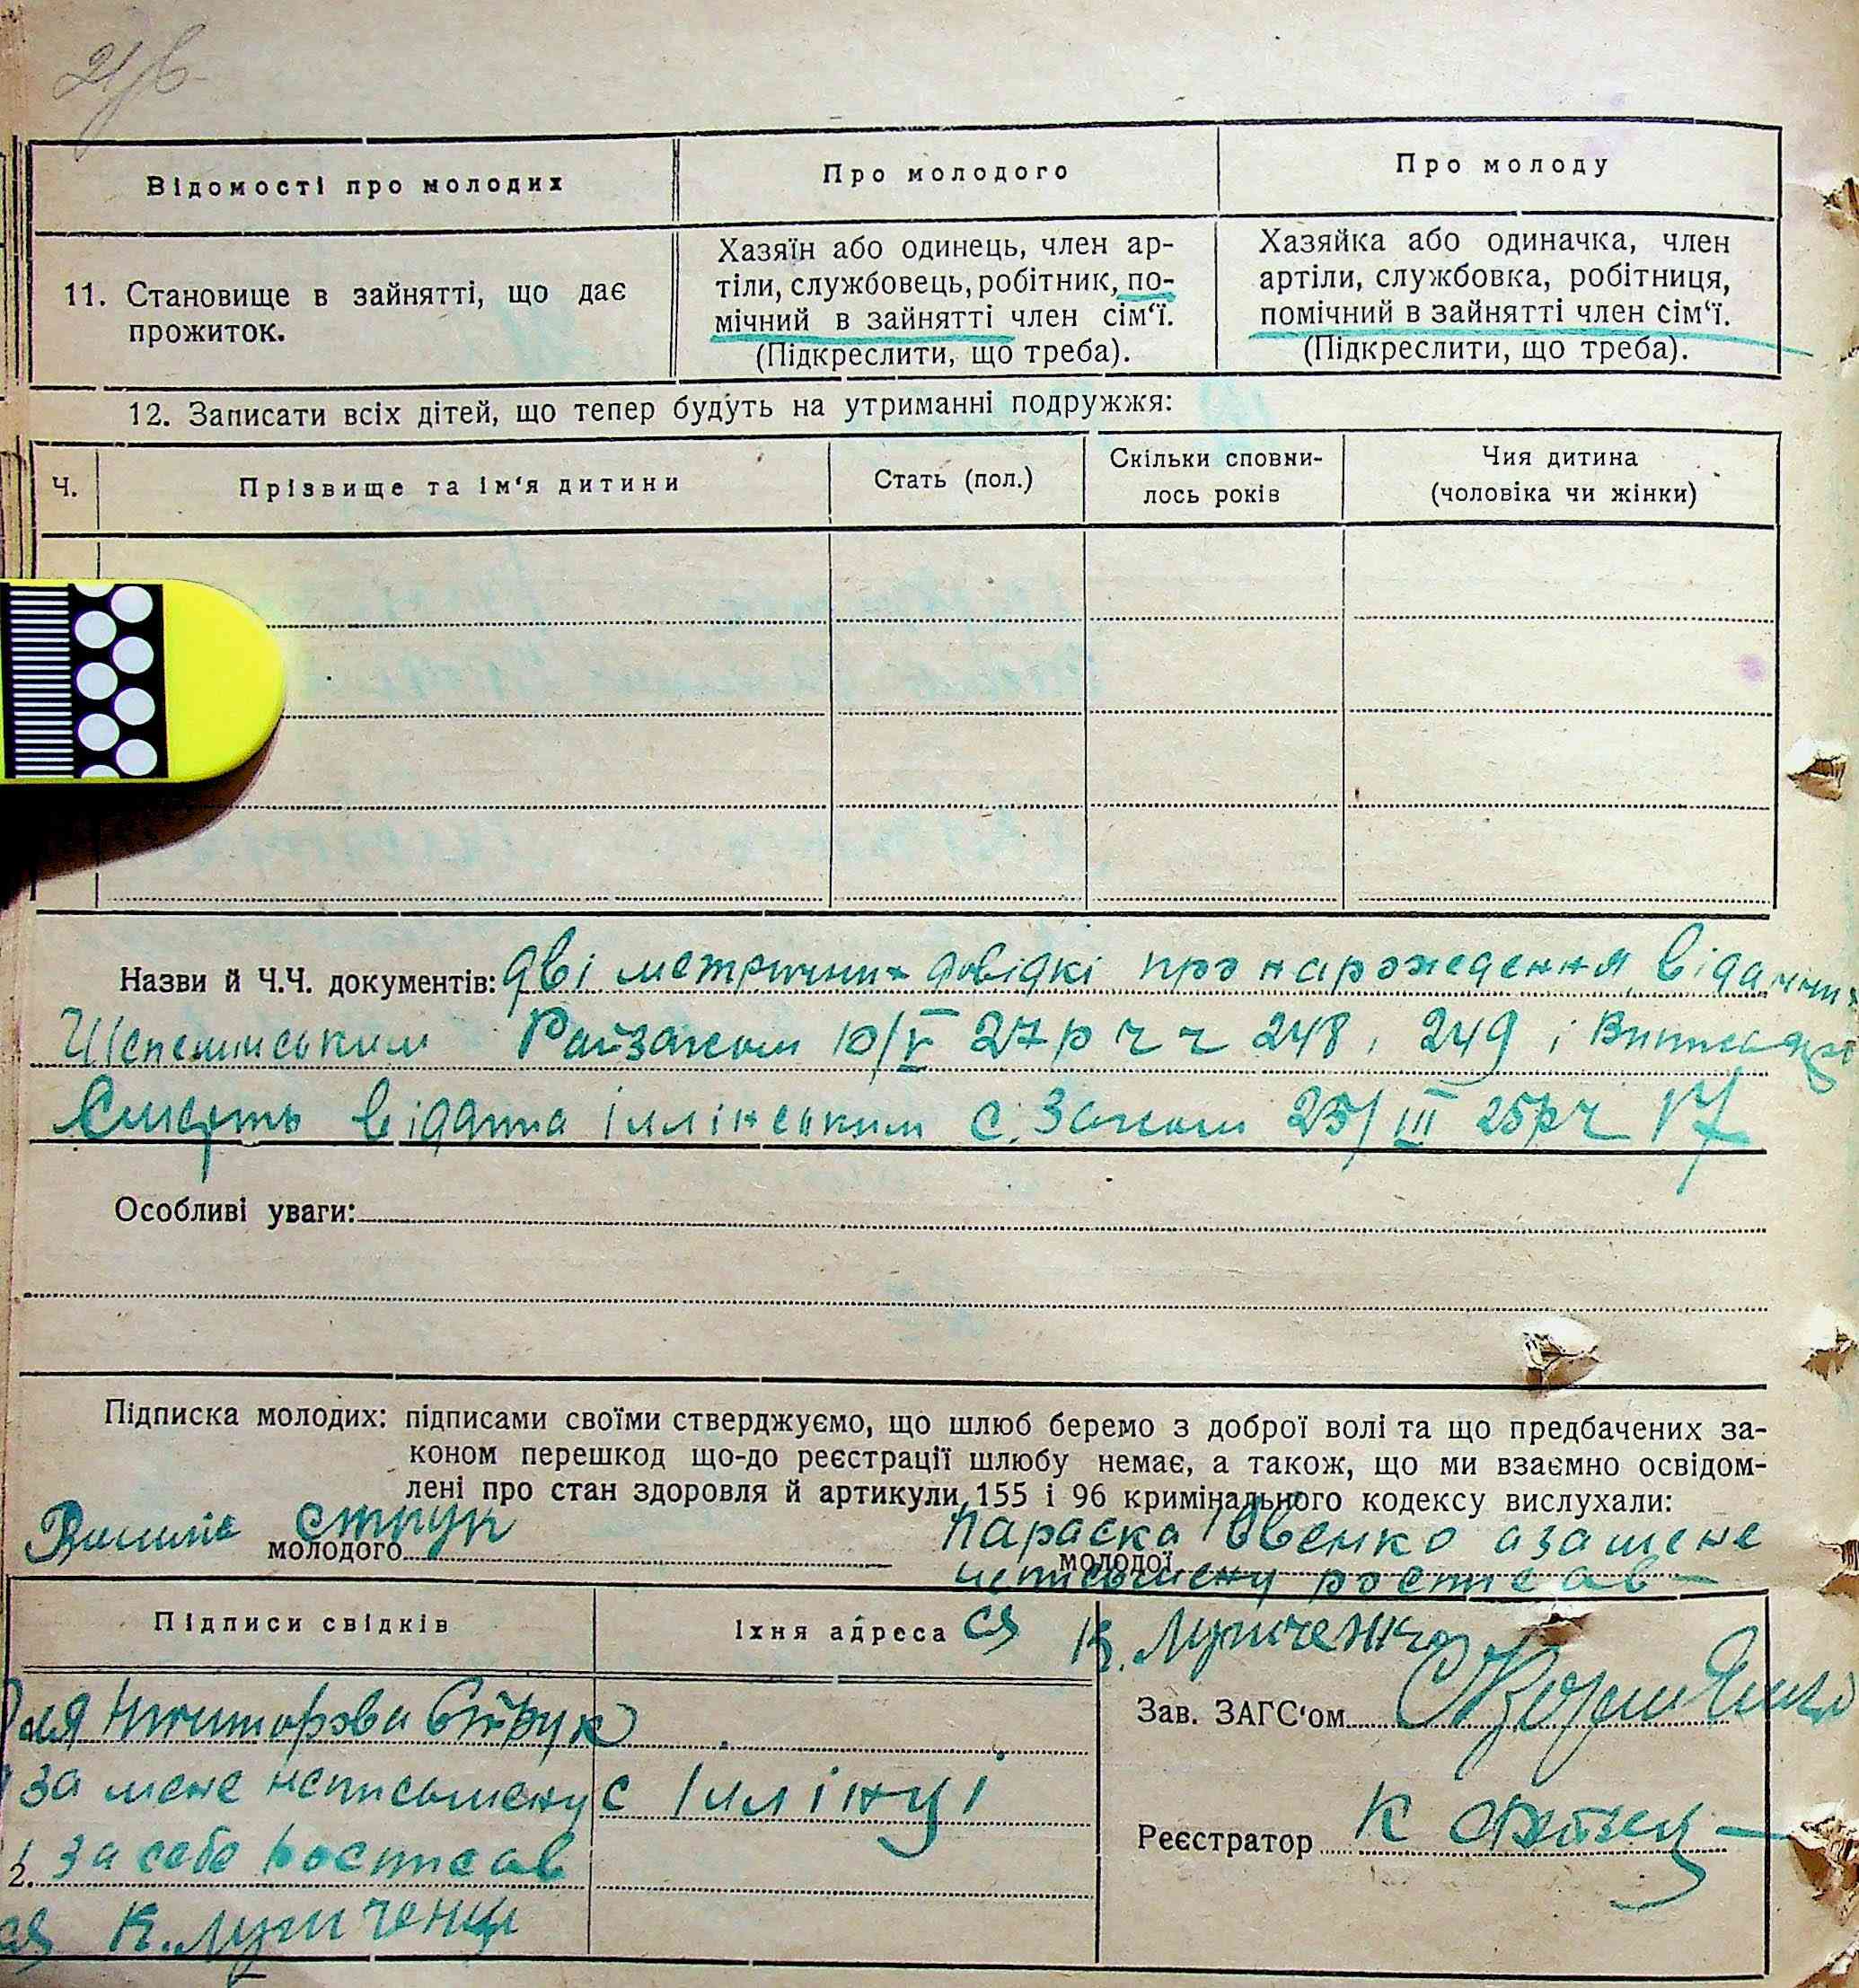 Відомості про молодих
Про молодого
Про молоду
11. Становище в зайнятті, що дає
прожиток.
Хазяїн або одинець, член ар-
тіли, службовець, робітник, по-
мічний в зайнятті член сім‘ї.
(Підкреслити, що треба).
Хазяйка або одиначка, член
артіли, службовка, робітниця,
помічний в зайнятті член сім‘ї.
(Підкреслити, що треба).
12. Записати всіх дітей, що тепер будуть на утриманні подружжя:
Ч.
Прізвище та ім‘я дитини
Стать (пол.)
Скільки сповни-
лось років
Чия дитина
(чоловіка чи жінки)
Назви й Ч.Ч. документів: дві метричних довідкі про народження відан
Райзагсом 10/V 27р ч ч 248, 249 і
Смерть відата іллінським с. Загсом 25/III 25р ч 17
Особливі уваги:
Підписка молодих: підписами своїми стверджуємо, що шлюб беремо з доброї волі та що предбачених за-
коном перешкод що-до реєстрації шлюбу немає, а також, що ми взаємно освідом-
лені про стан здоровля й артикули 155 і 96 кримінального кодексу вислухали:
молодого Струк
Параска а за мене
молодої неписьмену росписав
ся К.
Підписи свідків
Їхня адреса
Струк
за мене неписьмену
с Іллінці
2. за себе росписав
ся К.
Зав. ЗАГС‘ом
Реєстратор К